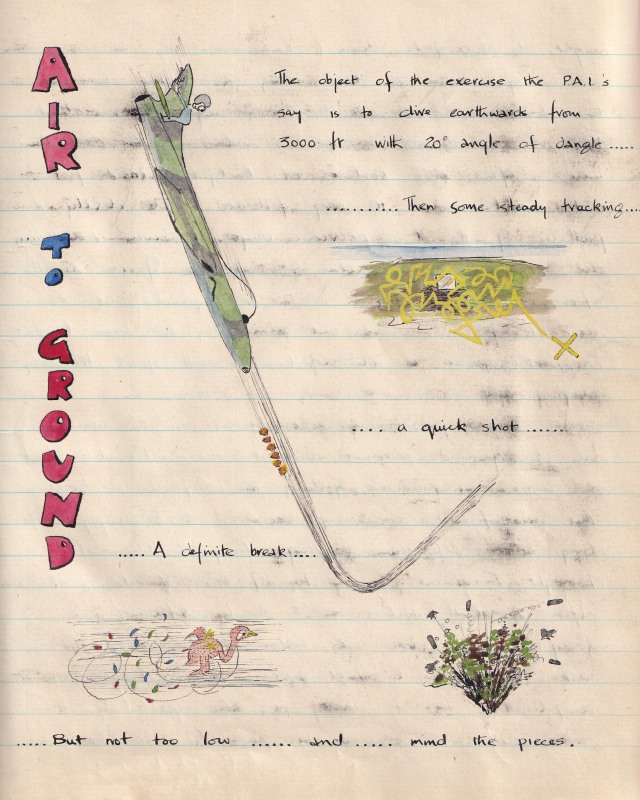 AIR TO GROUND
The object of the exercise the P.A.I.'s
say is to dive earthwards from
3000 ft with 20° angle of dangle.....
...........Then some steady tracking....
.... a quick shot ......
..... A definite break.....
.....But not too low ...... and ..... mind the pieces.